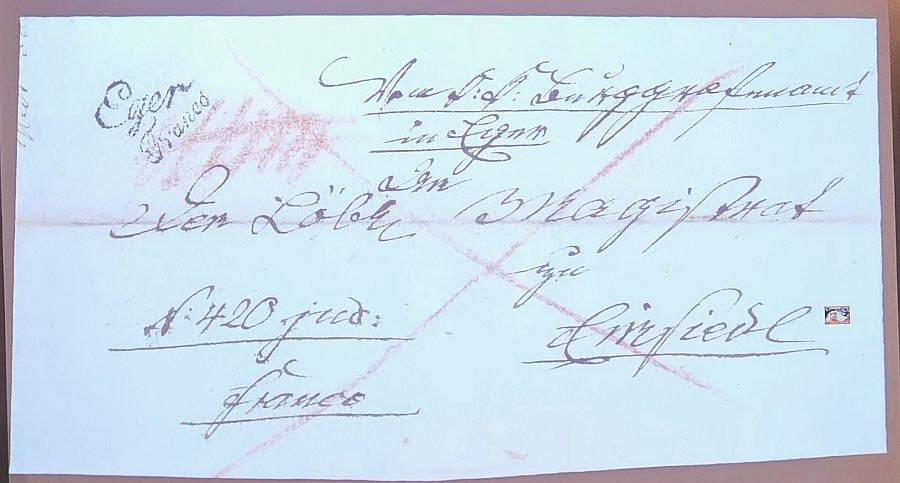 Eger
Franco
Vom K: K: Burggrafenamt
in Eger
An
Den Löbl:
Magistrat
zu
Einsiedl
N: 420 jud:
franco